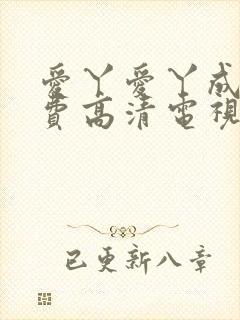 愛丫愛丫成
費高清電視
已更新八章